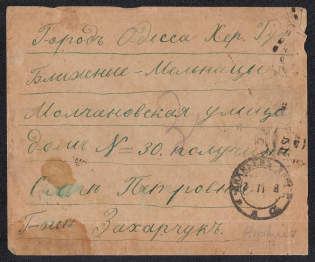 Городъ Одесса Хер. Гу
Ближные-Мельницы
Молчановская улица
Домъ № 30. получи
Петровн
Г-жѣ Захарчукъ.